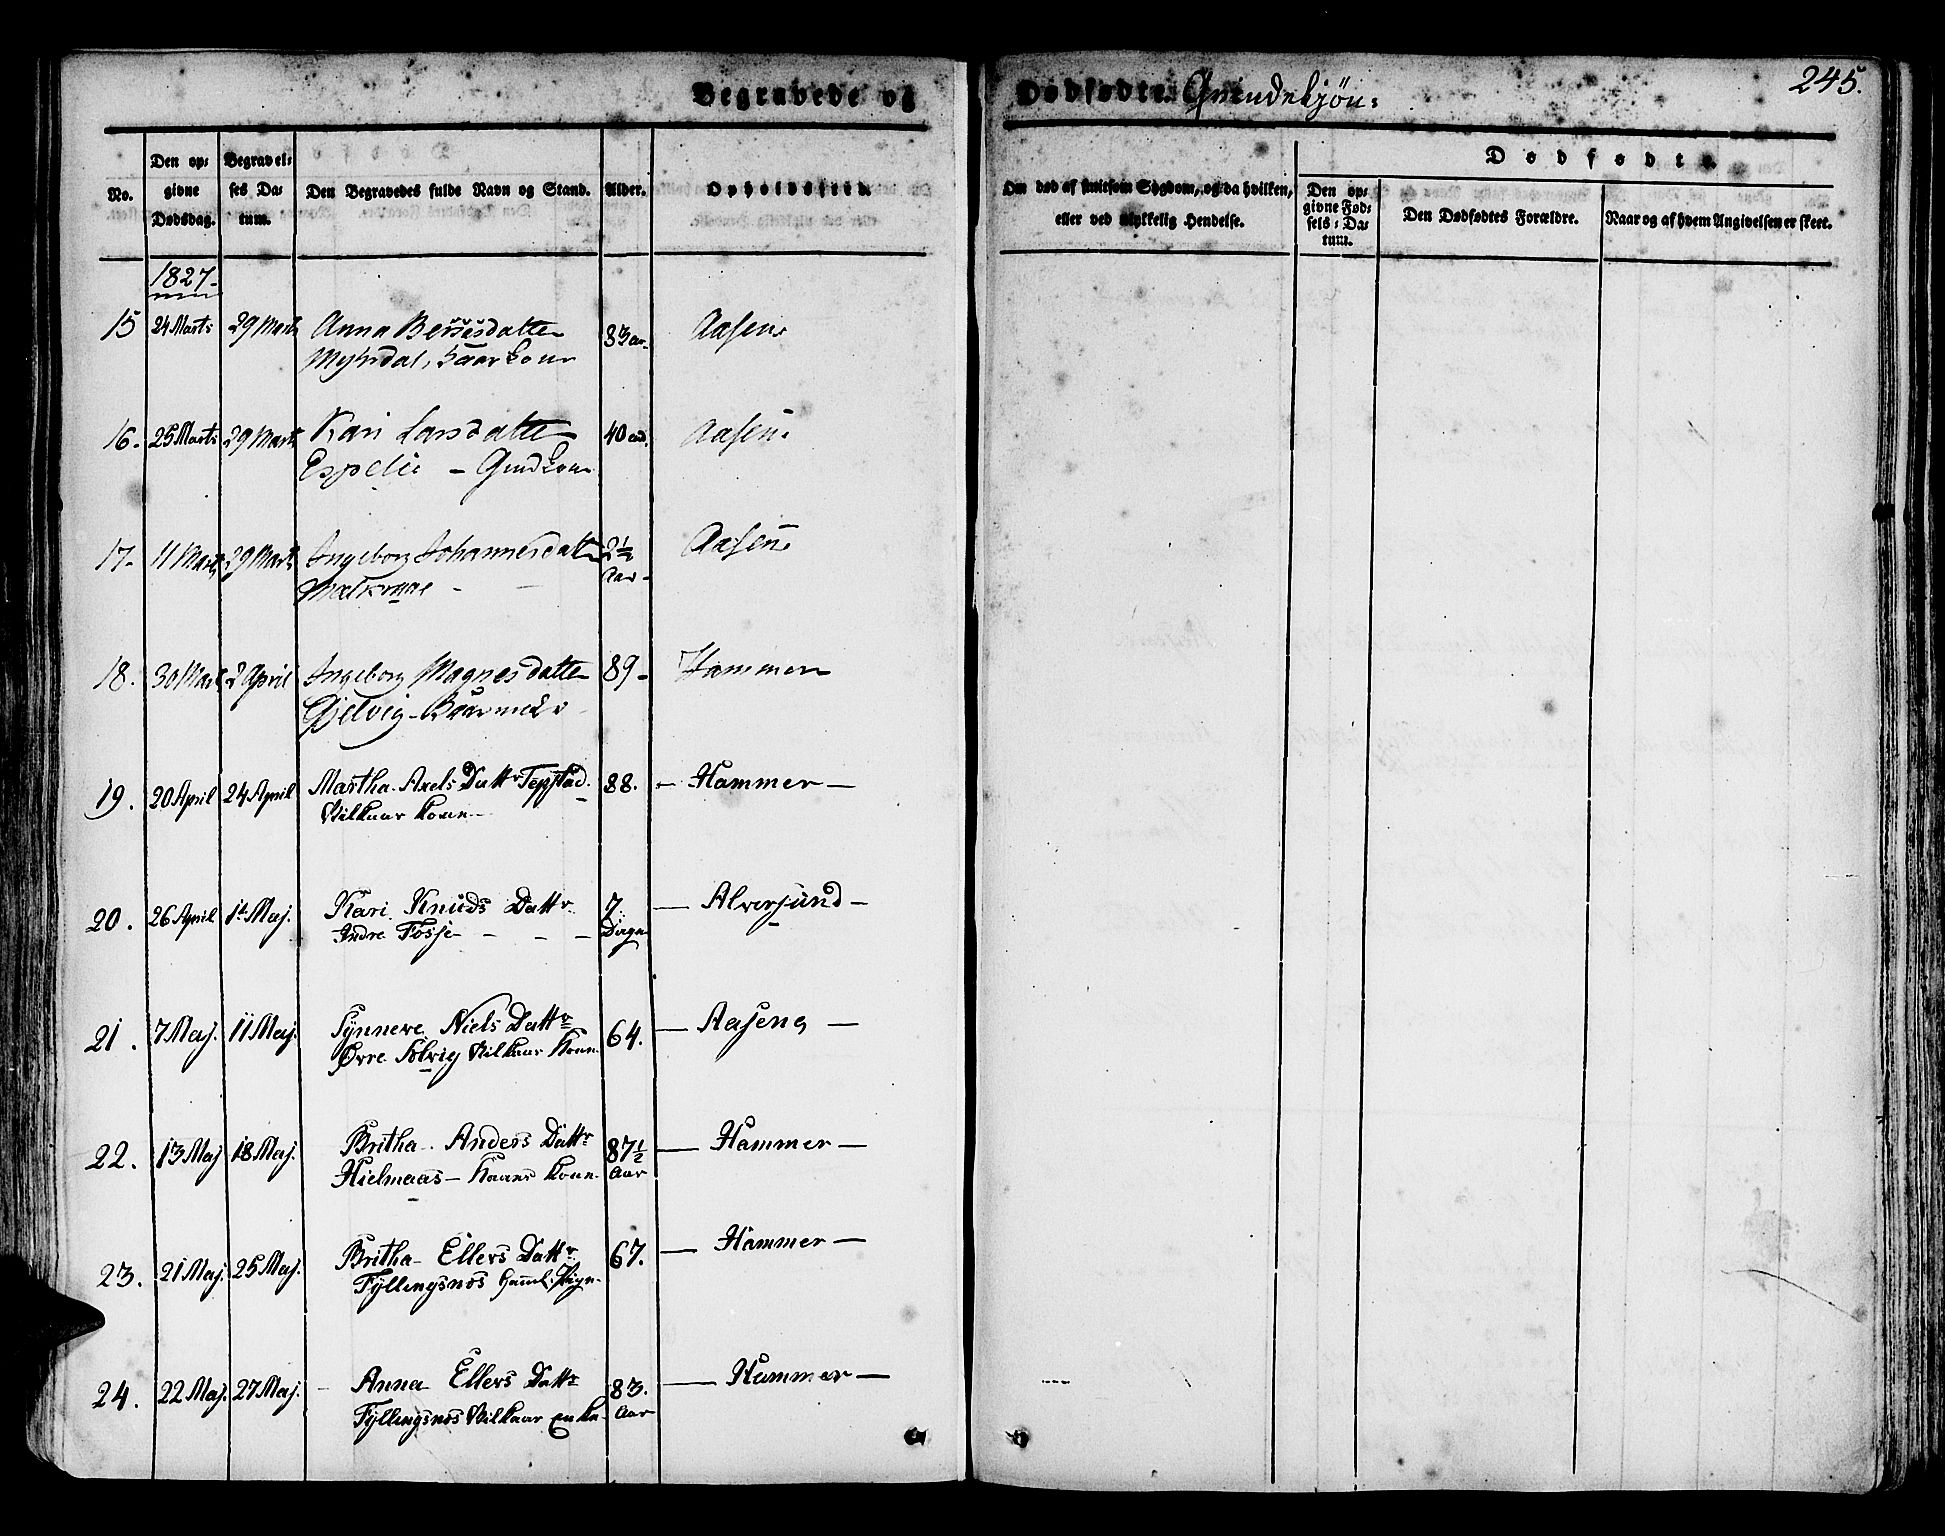 Begravede og Dødfødte Qvindekjøn:
245.
No.
Den op-
givne
Dødsdag.
Begravel-
ses Da-
tum.
Den Begravedes fulde Navn og Stand.
Alder.
Opholdssted.
Om død af smitsom Sygdom, og da hvilken,
eller ved ulykkelig Hendelse.
Dødfødte.
Den op-
givne Fød-
sels-Da-
tum.
Den Dødfødtes Forældre.
Naar og af hvem Angivelsen er skeet.
1827
15 24 Marts 29 Marts Anna datter 83 Aar Aasene
Myhrdal,
16. 25 Marts 29 Marts Kari Larsdatter 40 Aasene
Espelie –
17. 11 Marts 29 Marts Ingeborg Johannesdatter 2½ Aasene
Aar
18. 30 Marts 2 April Ingeborg Magnesdatter 89 Hammer
Gjelvig
19. 20 April 24 April Martha Axels Dattr 88. – Hammer –
Vilkaar Kone
20. 26 April 1te Maj. Kari Knuds Dattr 7 – Alversund –
Indre Fosse – – – Dage
21. 7 Maj. 11 Maj. Synneve Niels Dattr 64. – Aasene –
Øvre Vilkaar Kone
22. 13 Maj 18 Maj. Britha Anders Dattr 87½ – Hammer –
Hielmaas – Kone. Aar
23. 21 Maj. 25 Maj. Britha Ellers Dattr 67. – Hammer –
Fyllingsnos Gaml. Pige
24. 22 Maj. 27 Maj. – Anna Ellers Dattr 83. – Hammer –
Fyllingsnos Vilkaar Enke Aar